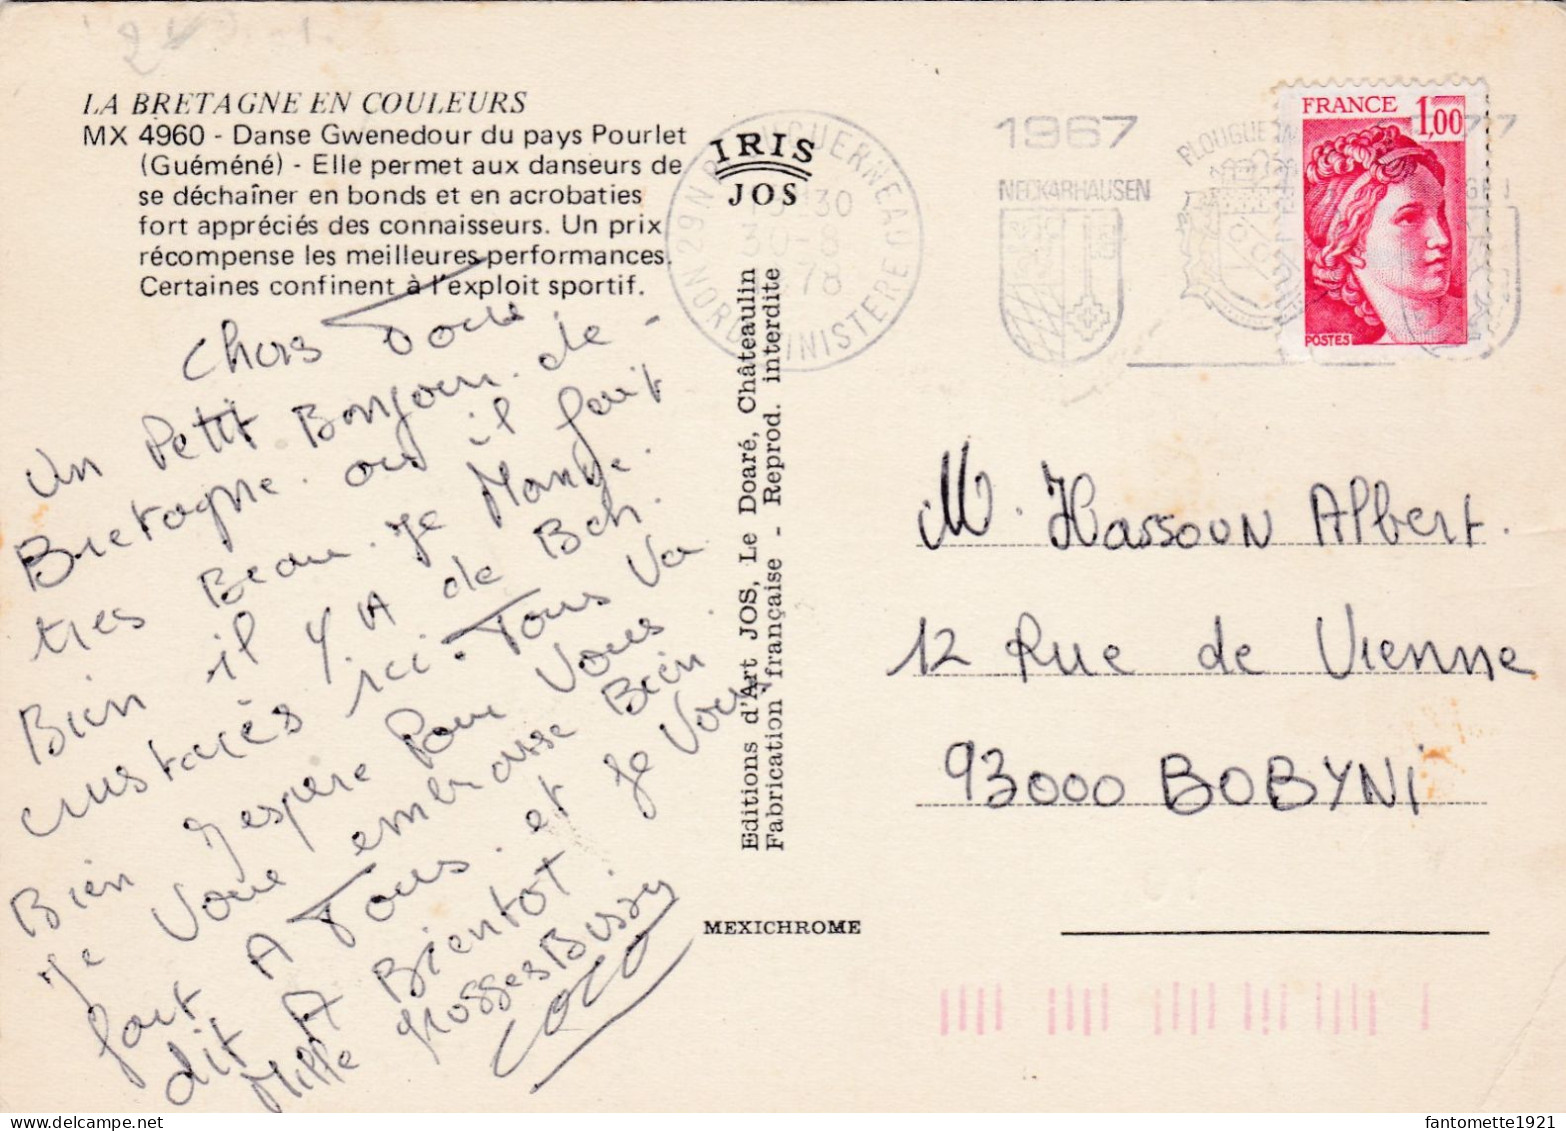 LA BRETAGNE EN COULEURS
MX 4960 - Danse Gwenedour du pays Pourlet
(Guéméné) - Elle permet aux danseurs de
se déchaîner en bonds et en acrobaties
fort appréciés des connaisseurs. Un prix
récompense les meilleures performances.
Certaines confinent à l'exploit sportif.
IRIS
JOS
29 N PLOUGUERNEAU
30
30-8
78
NORD FINISTERE
1967
NECKARHAUSEN
PLOUGUE
77
FRANCE 1,00
POSTES
Chers
un Petit Bonjour de
Bretagne. ou il fait
tres Beau. Je Mange.
Bien il y A de Bcp.
crustacés ici. Tous Va
Bien J'espere Pour Vous
Je Vous embrasse Bien
fort A Tous. et Je Vous
dit A Bientot.
Mille Grosses Bisous
COCO
Editions d'Art JOS, Le Doaré, Châteaulin
Fabrication française - Reprod. interdite
M. Hassoun Albert.
12 Rue de Vienne
93000 BOBYNi
MEXICHROME
fantomette1921